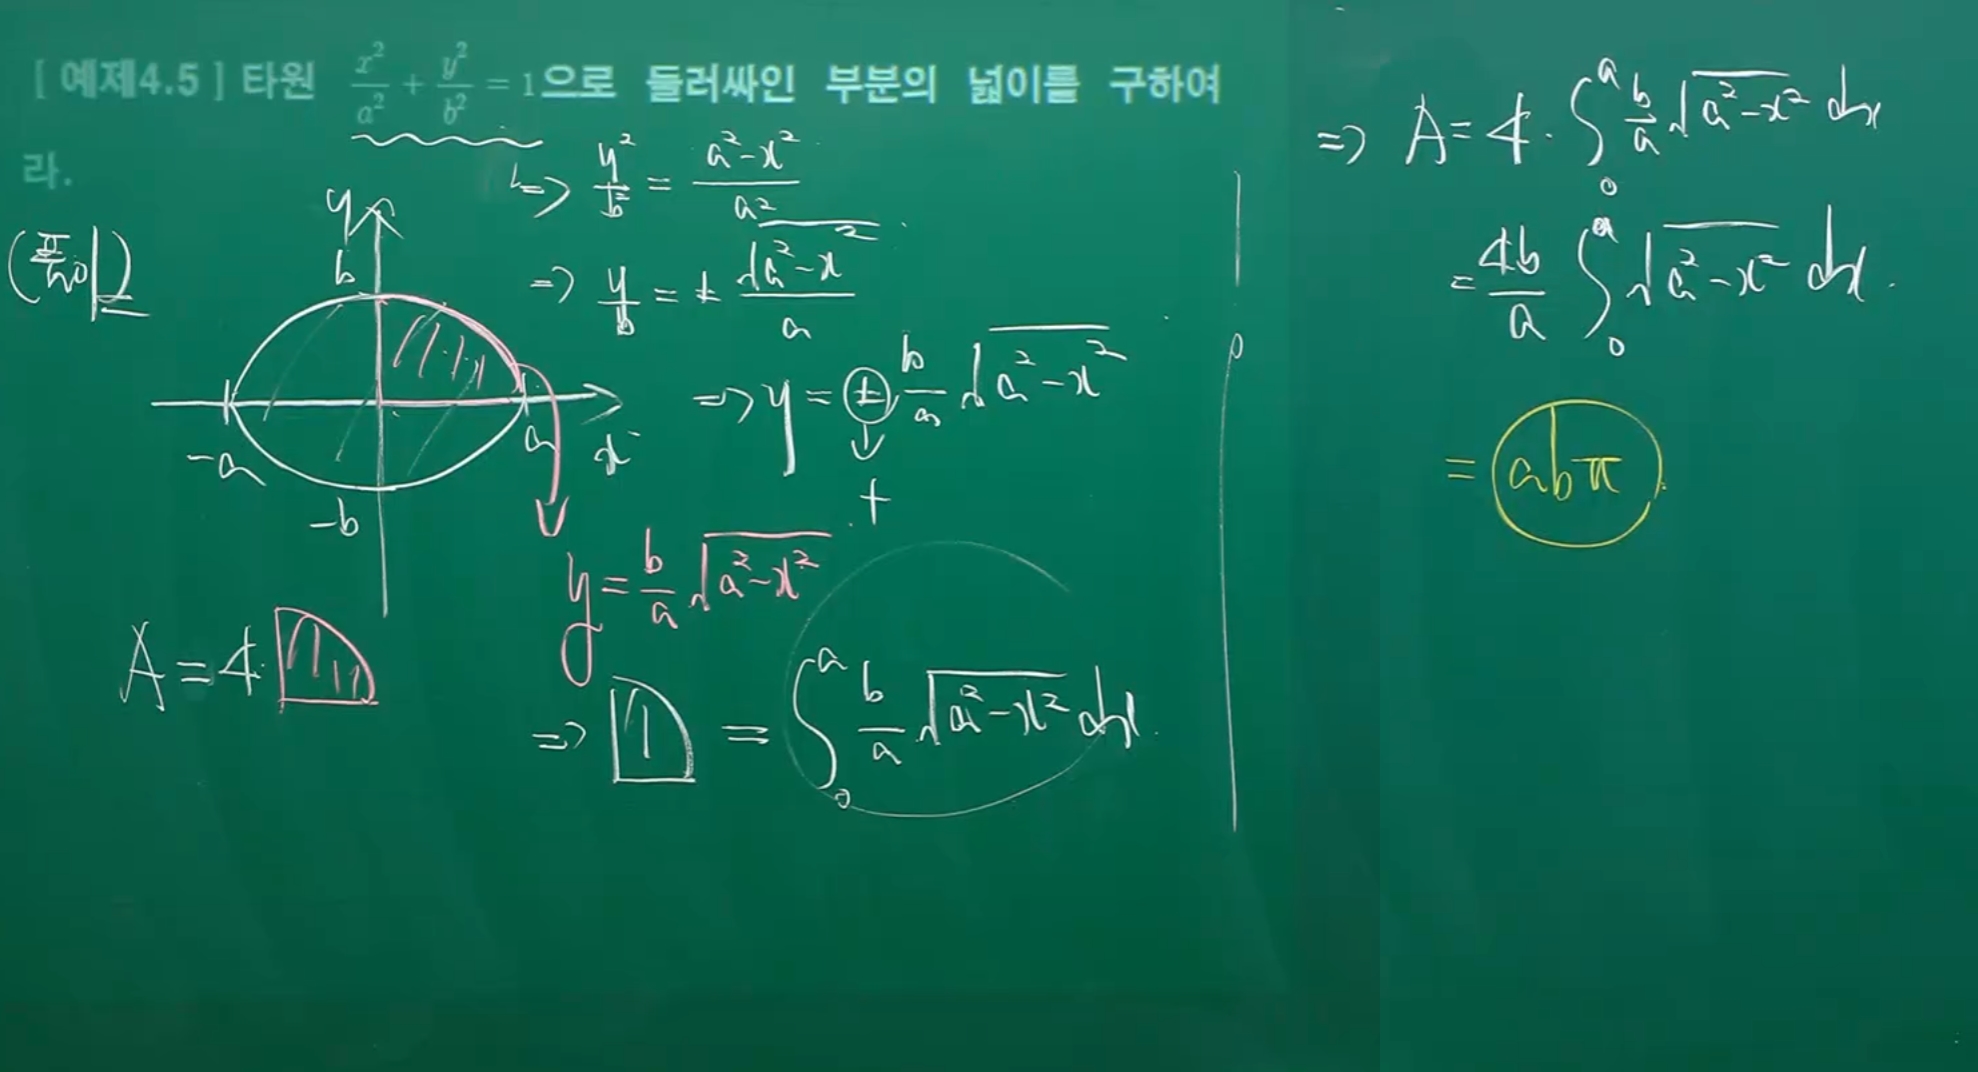 [ 예제4.5 ] 타원 x²/a² + y²/b² = 1으로 둘러싸인 부분의 넓이를 구하여
라.
(풀이)
y
b
-a
a
x
-b
=> y²/b² = (a²-x²)/a²
=> y/b = ± √(a²-x²)/a
=> y = ± b/a √(a²-x²)
+
y = b/a √(a²-x²)
A = 4·
=> = ∫₀ᵃ b/a √(a²-x²) dx.
=> A = 4·∫₀ᵃ b/a √(a²-x²) dx
= 4b/a ∫₀ᵃ √(a²-x²) dx.
= abπ